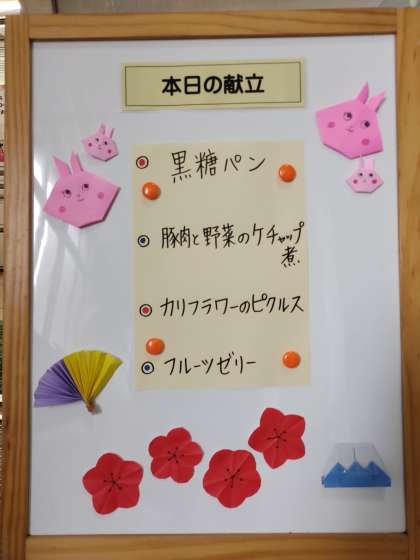 本日の献立
黒糖パン
豚肉と野菜のケチャップ
煮
カリフラワーのピクルス
フルーツゼリー